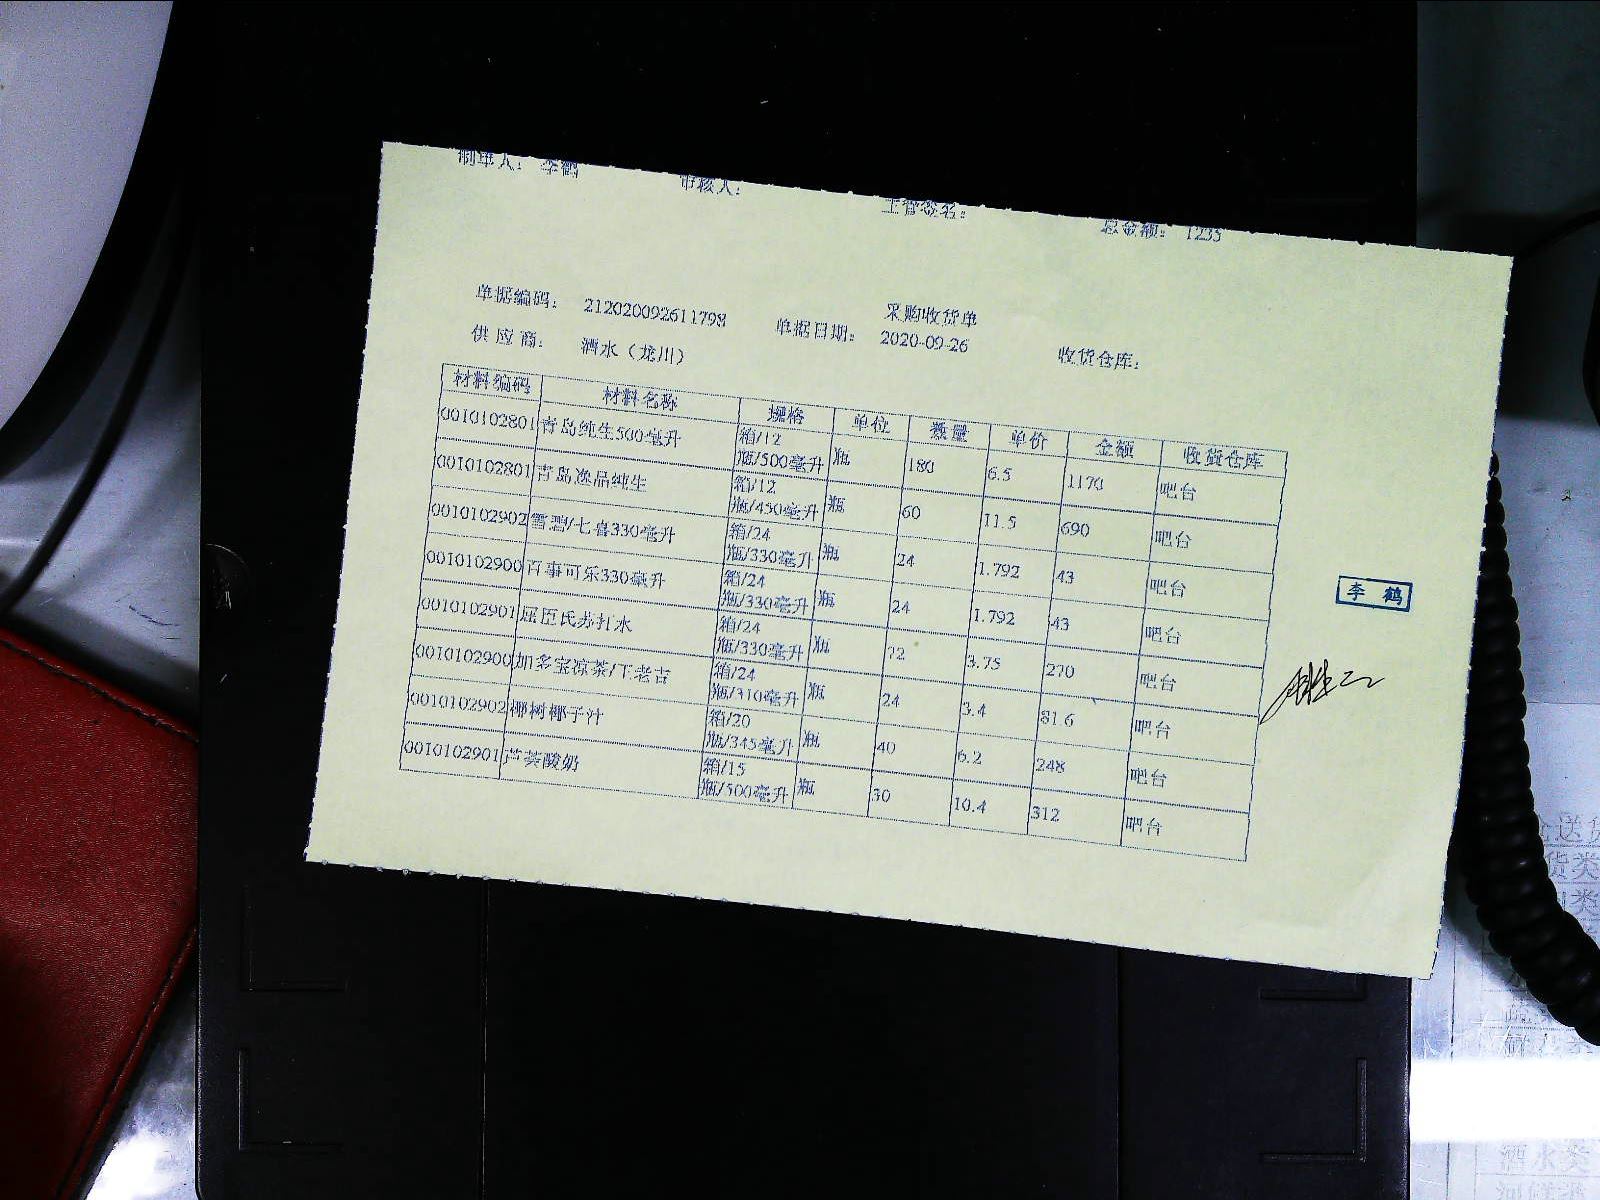 制单人： 李鹤 审核人： 主管签名： 总金额： 1233
采购收货单
单据编码： 212020092611798 单据日期： 2020-09-26 收货仓库：
供 应 商： 酒水（龙川）
材料编码 材料名称 规格 单位 数量 单价 金额 收货仓库
0010102801 青岛纯生500毫升 箱/12瓶/500毫升 瓶 180 6.5 1170 吧台
0010102801 青岛逸品纯生 箱/12瓶/450毫升 瓶 60 11.5 690 吧台
0010102902 雪碧/七喜330毫升 箱/24瓶/330毫升 瓶 24 1.792 43 吧台
0010102900 百事可乐330毫升 箱/24瓶/330毫升 瓶 24 1.792 43 吧台
0010102901 屈臣氏苏打水 箱/24瓶/330毫升 瓶 72 3.75 270 吧台
0010102900 加多宝凉茶/王老吉 箱/24瓶/310毫升 瓶 24 3.4 81.6 吧台
0010102902 椰树椰子汁 箱/20瓶/345毫升 瓶 40 6.2 248 吧台
0010102901 芦荟酸奶 箱/15瓶/500毫升 瓶 30 10.4 312 吧台
李 鹤
送货
货类
类
酒水类